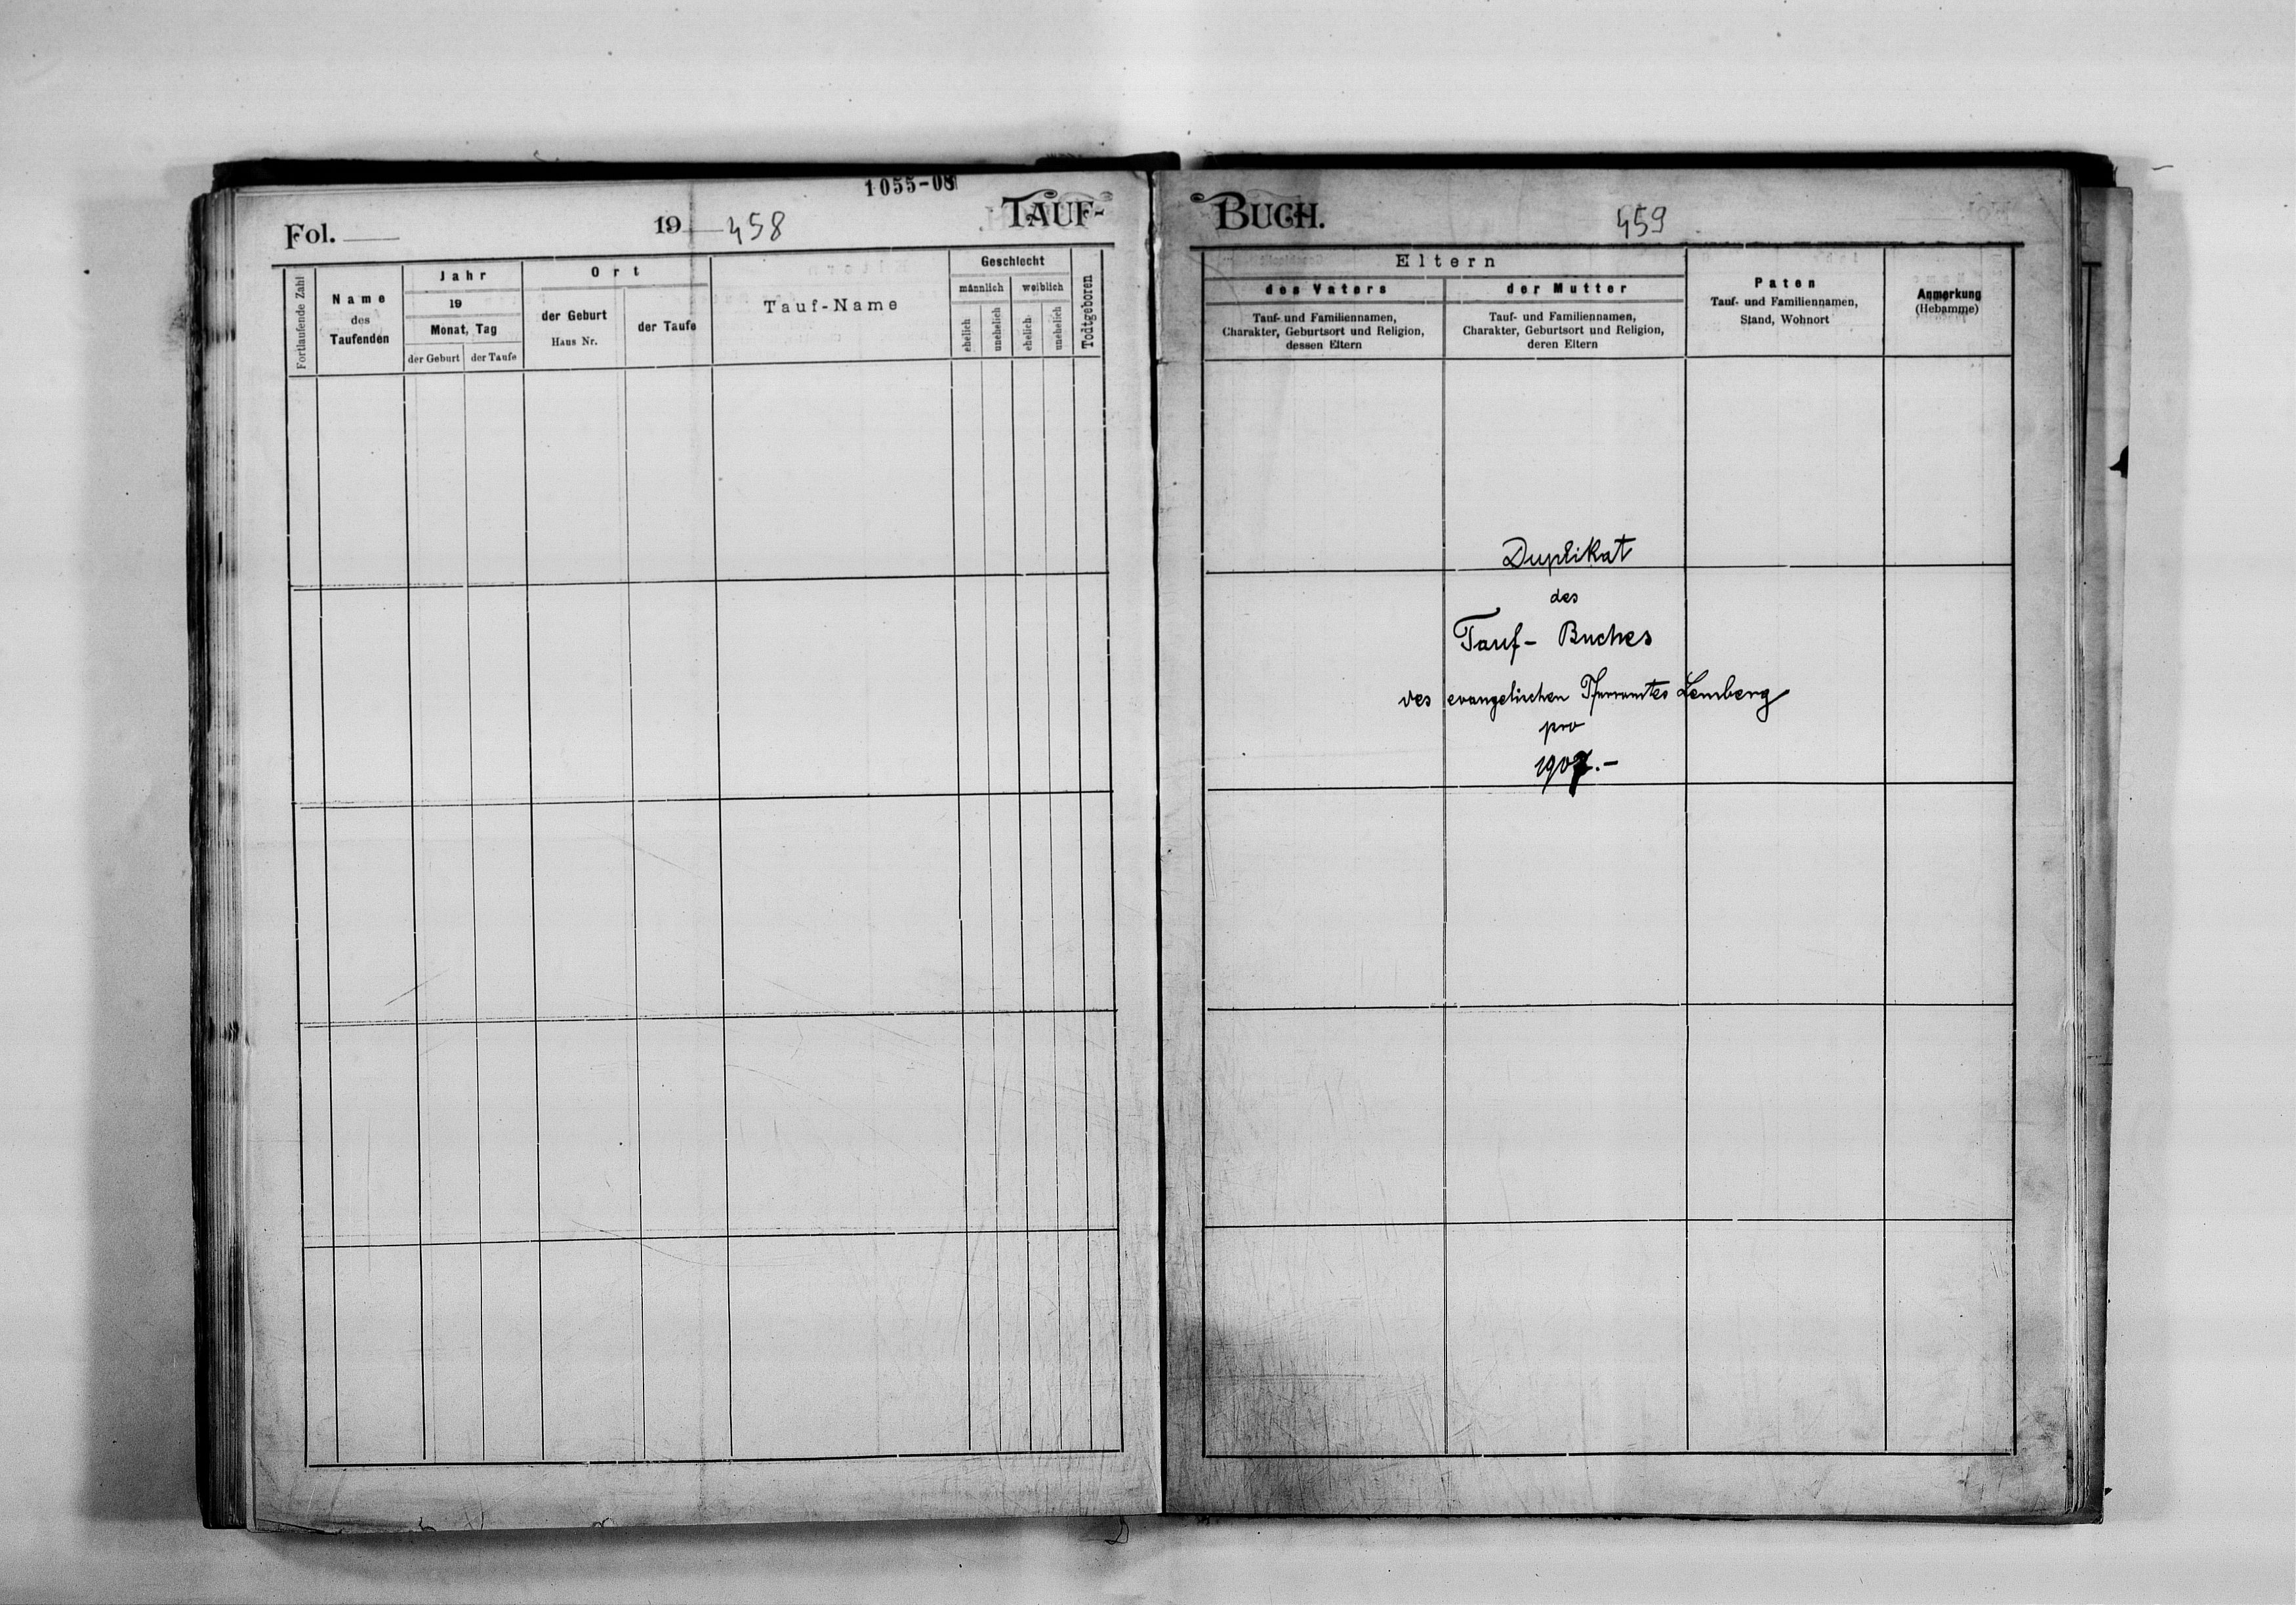 1055-08
Fol. 19 458 TAUF-
Fortlaufende Zahl
Name
des
Taufenden
Jahr
19
Monat, Tag
der Geburt
der Taufe
Ort
der Geburt
Haus Nr.
der Taufe
Tauf-Name
Geschlecht
männlich
weiblich
ehelich
unehelich
ehelich
unehelich
Todtgeboren
BUCH. 459
Eltern
des Vaters
Tauf- und Familiennamen,
Charakter, Geburtsort und Religion,
dessen Eltern
der Mutter
Tauf- und Familiennamen,
Charakter, Geburtsort und Religion,
deren Eltern
Paten
Tauf- und Familiennamen,
Stand, Wohnort
Anmerkung
(Hebamme)
Duplikat
des
Tauf- Buches
des evangelischen Pfarramtes Lemberg
pro
1907.-